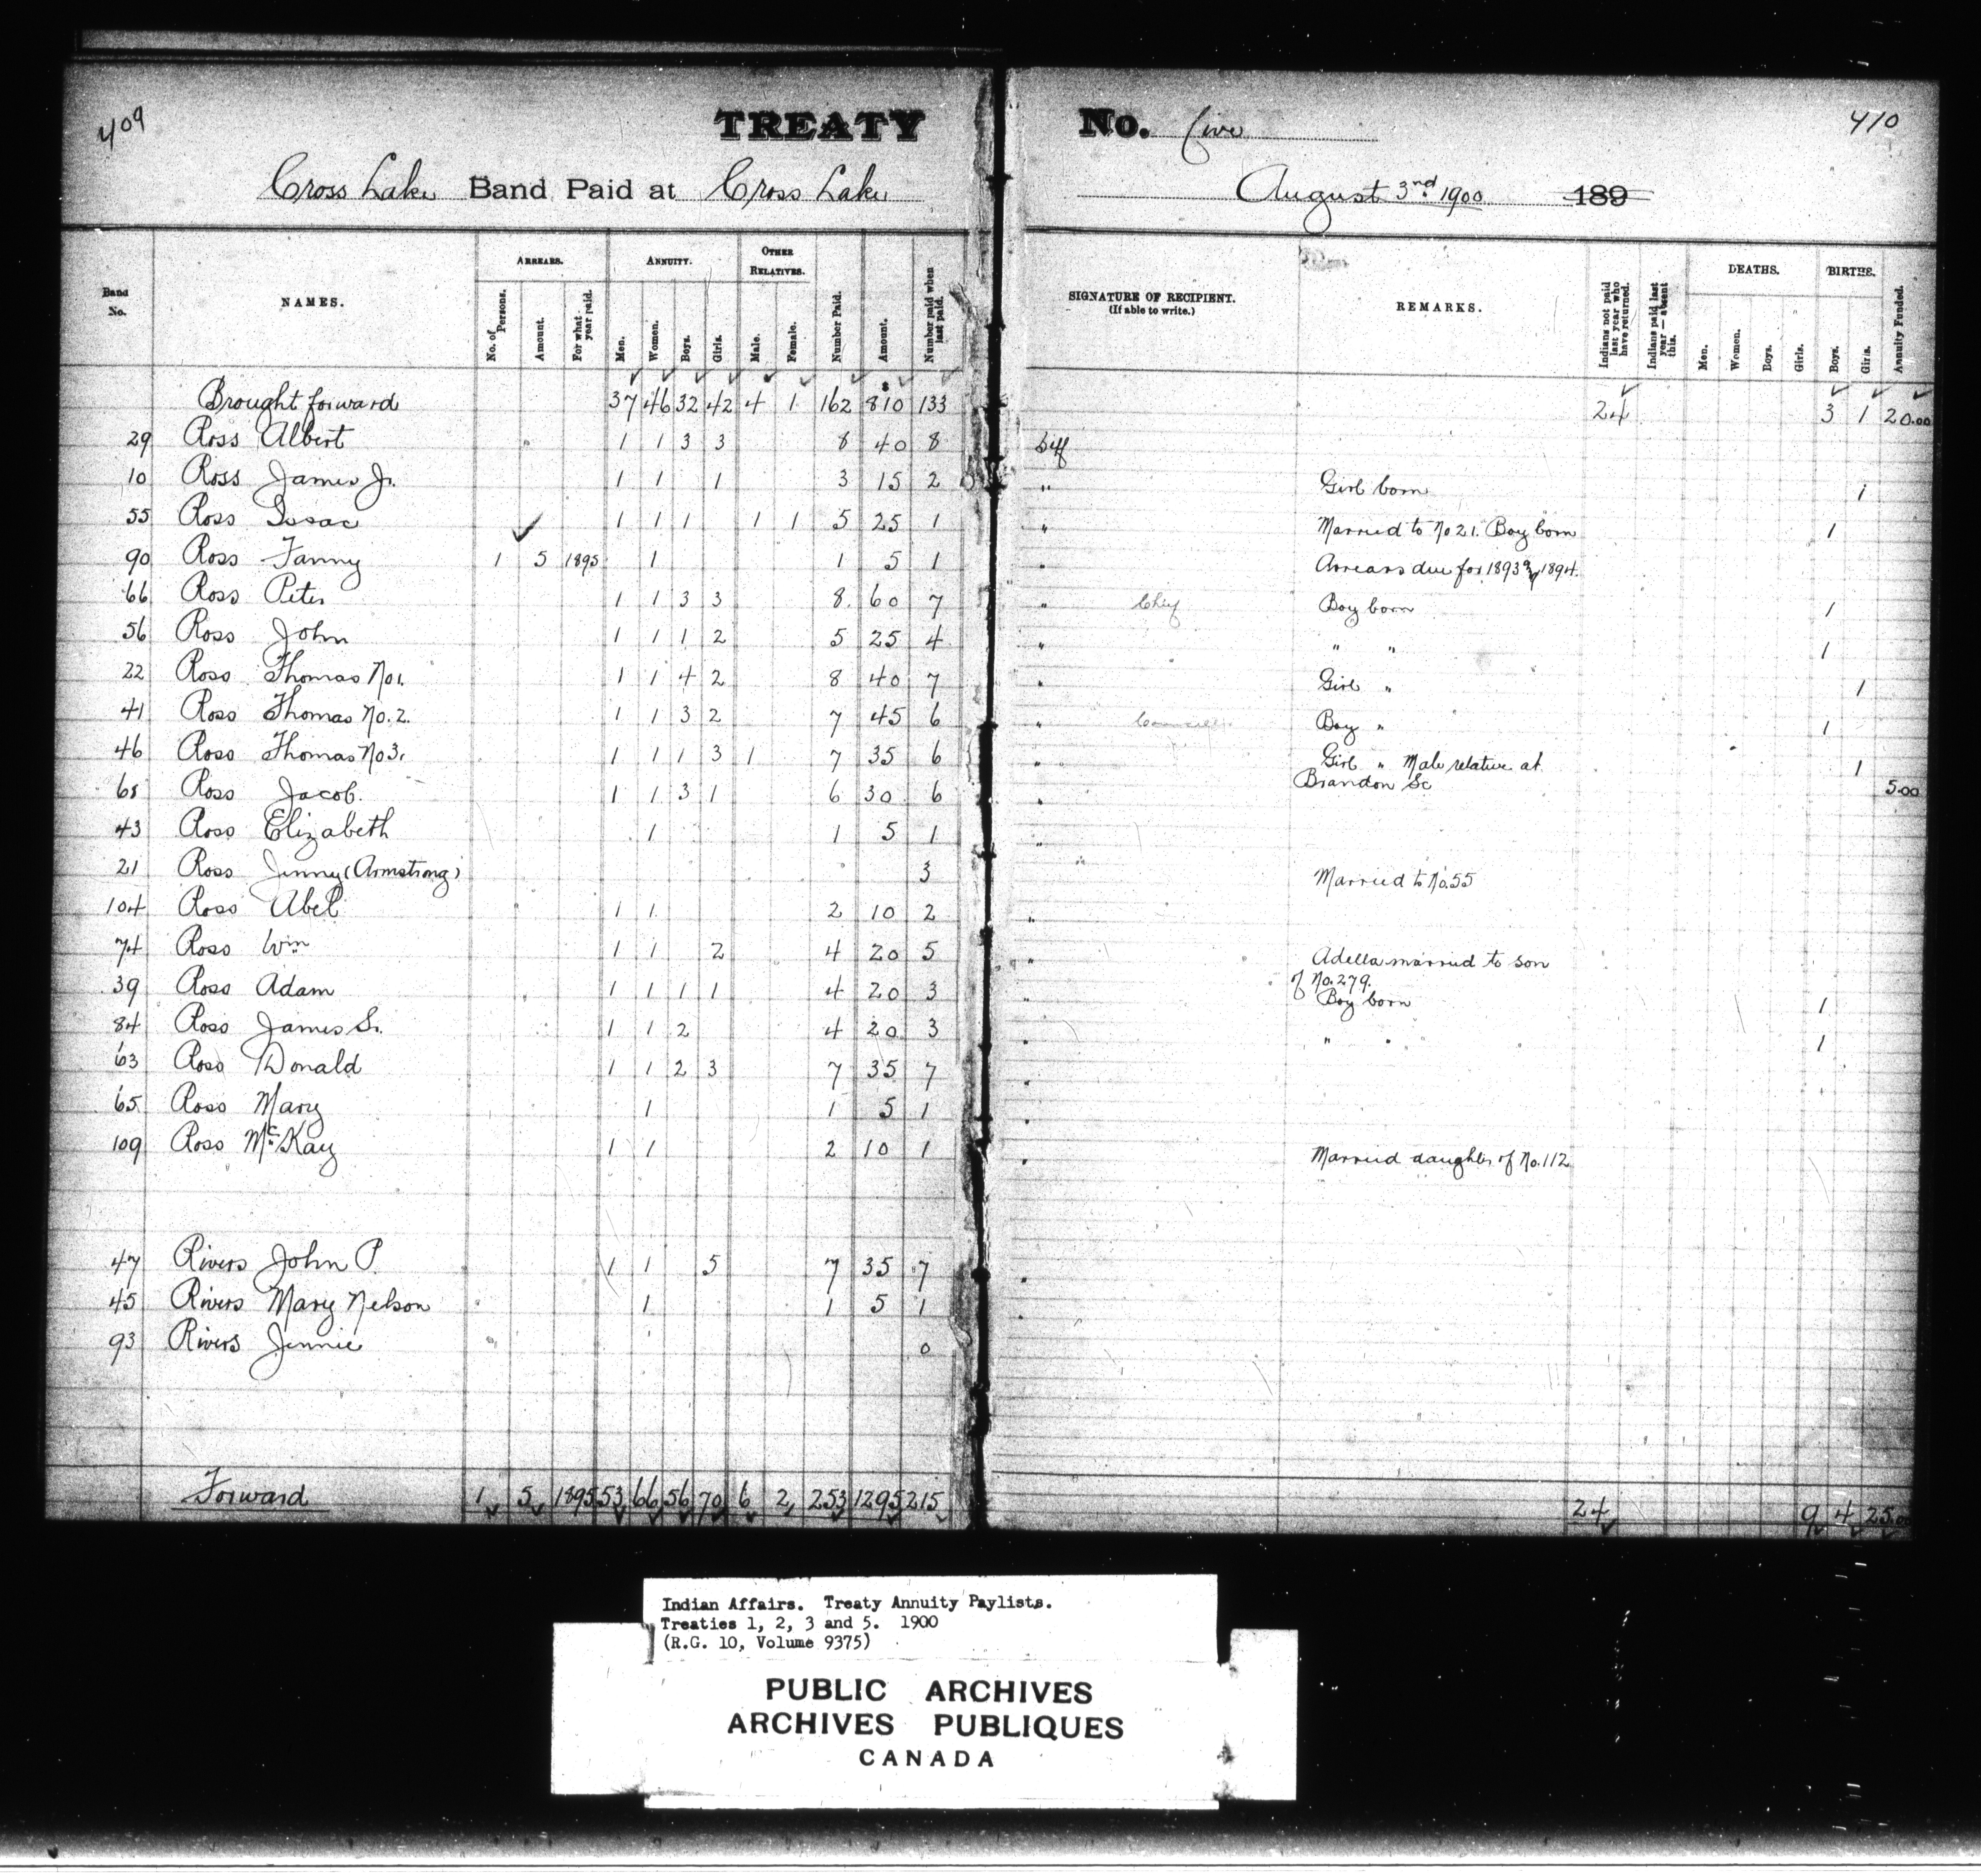 409 TREATY No. Five 410
Cross Lake Band Paid at Cross Lake August 3rd 1900 189
Band No. NAMES. ARREARS. No. of Persons. Amount. For what year paid. ANNUITY. Men. Women. Boys. Girls. OTHER RELATIVES. Male. Female. Number Paid. Amount. Number paid when last paid. SIGNATURE OF RECIPIENT. (If able to write.) REMARKS. Indians not paid last year who have returned. Indians paid last year — absent this. DEATHS. Men. Women. Boys. Girls. BIRTHS. Boys. Girls. Annuity Funded.
Brought forward 37 46 32 42 4 1 162 $810 133 24 3 1 20.00
29 Ross Albert 1 1 3 3 8 40 8
10 Ross James Jr. 1 1 1 3 15 2 " Girl born 1
55 Ross Isaac 1 1 1 1 1 5 25 1 " Married to No 21. Boy born 1
90 Ross Fanny 1 5 1895 1 1 5 1 " Arrears due for 1893 & 1894.
66 Ross Peter 1 1 3 3 8 60 7 " Chief Boy born 1
56 Ross John 1 1 1 2 5 25 4 " " " 1
22 Ross Thomas No 1. 1 1 4 2 8 40 7 " Girl " 1
41 Ross Thomas No. 2. 1 1 3 2 7 45 6 " Boy " 1
46 Ross Thomas No 3. 1 1 1 3 1 7 35 6 " Girl " Male relative at 1
Brandon Sc 5.00
68 Ross Jacob. 1 1 3 1 6 30 6 "
43 Ross Elizabeth 1 1 5 1 "
21 Ross Jenny (Armstrong) 3 Married to No. 55
104 Ross Abel 1 1 2 10 2 "
74 Ross Wm 1 1 2 4 20 5 " Adella married to son
of No. 279.
39 Ross Adam 1 1 1 1 4 20 3 " Boy born 1
84 Ross James Sr. 1 1 2 4 20 3 " " " 1
63 Ross Donald 1 1 2 3 7 35 7 "
65 Ross Mary 1 1 5 1 "
109 Ross McKay 1 1 2 10 1 " Married daughter of No. 112
47 Rivers John P. 1 1 5 7 35 7 "
45 Rivers Mary Nelson 1 1 5 1 "
93 Rivers Jennie 0
Forward 1 5 1895 53 66 56 70 6 2 253 1295 215 24 9 4 25.00
Indian Affairs. Treaty Annuity Paylists.
Treaties 1, 2, 3 and 5. 1900
(R.G. 10, Volume 9375)
PUBLIC ARCHIVES
ARCHIVES PUBLIQUES
CANADA